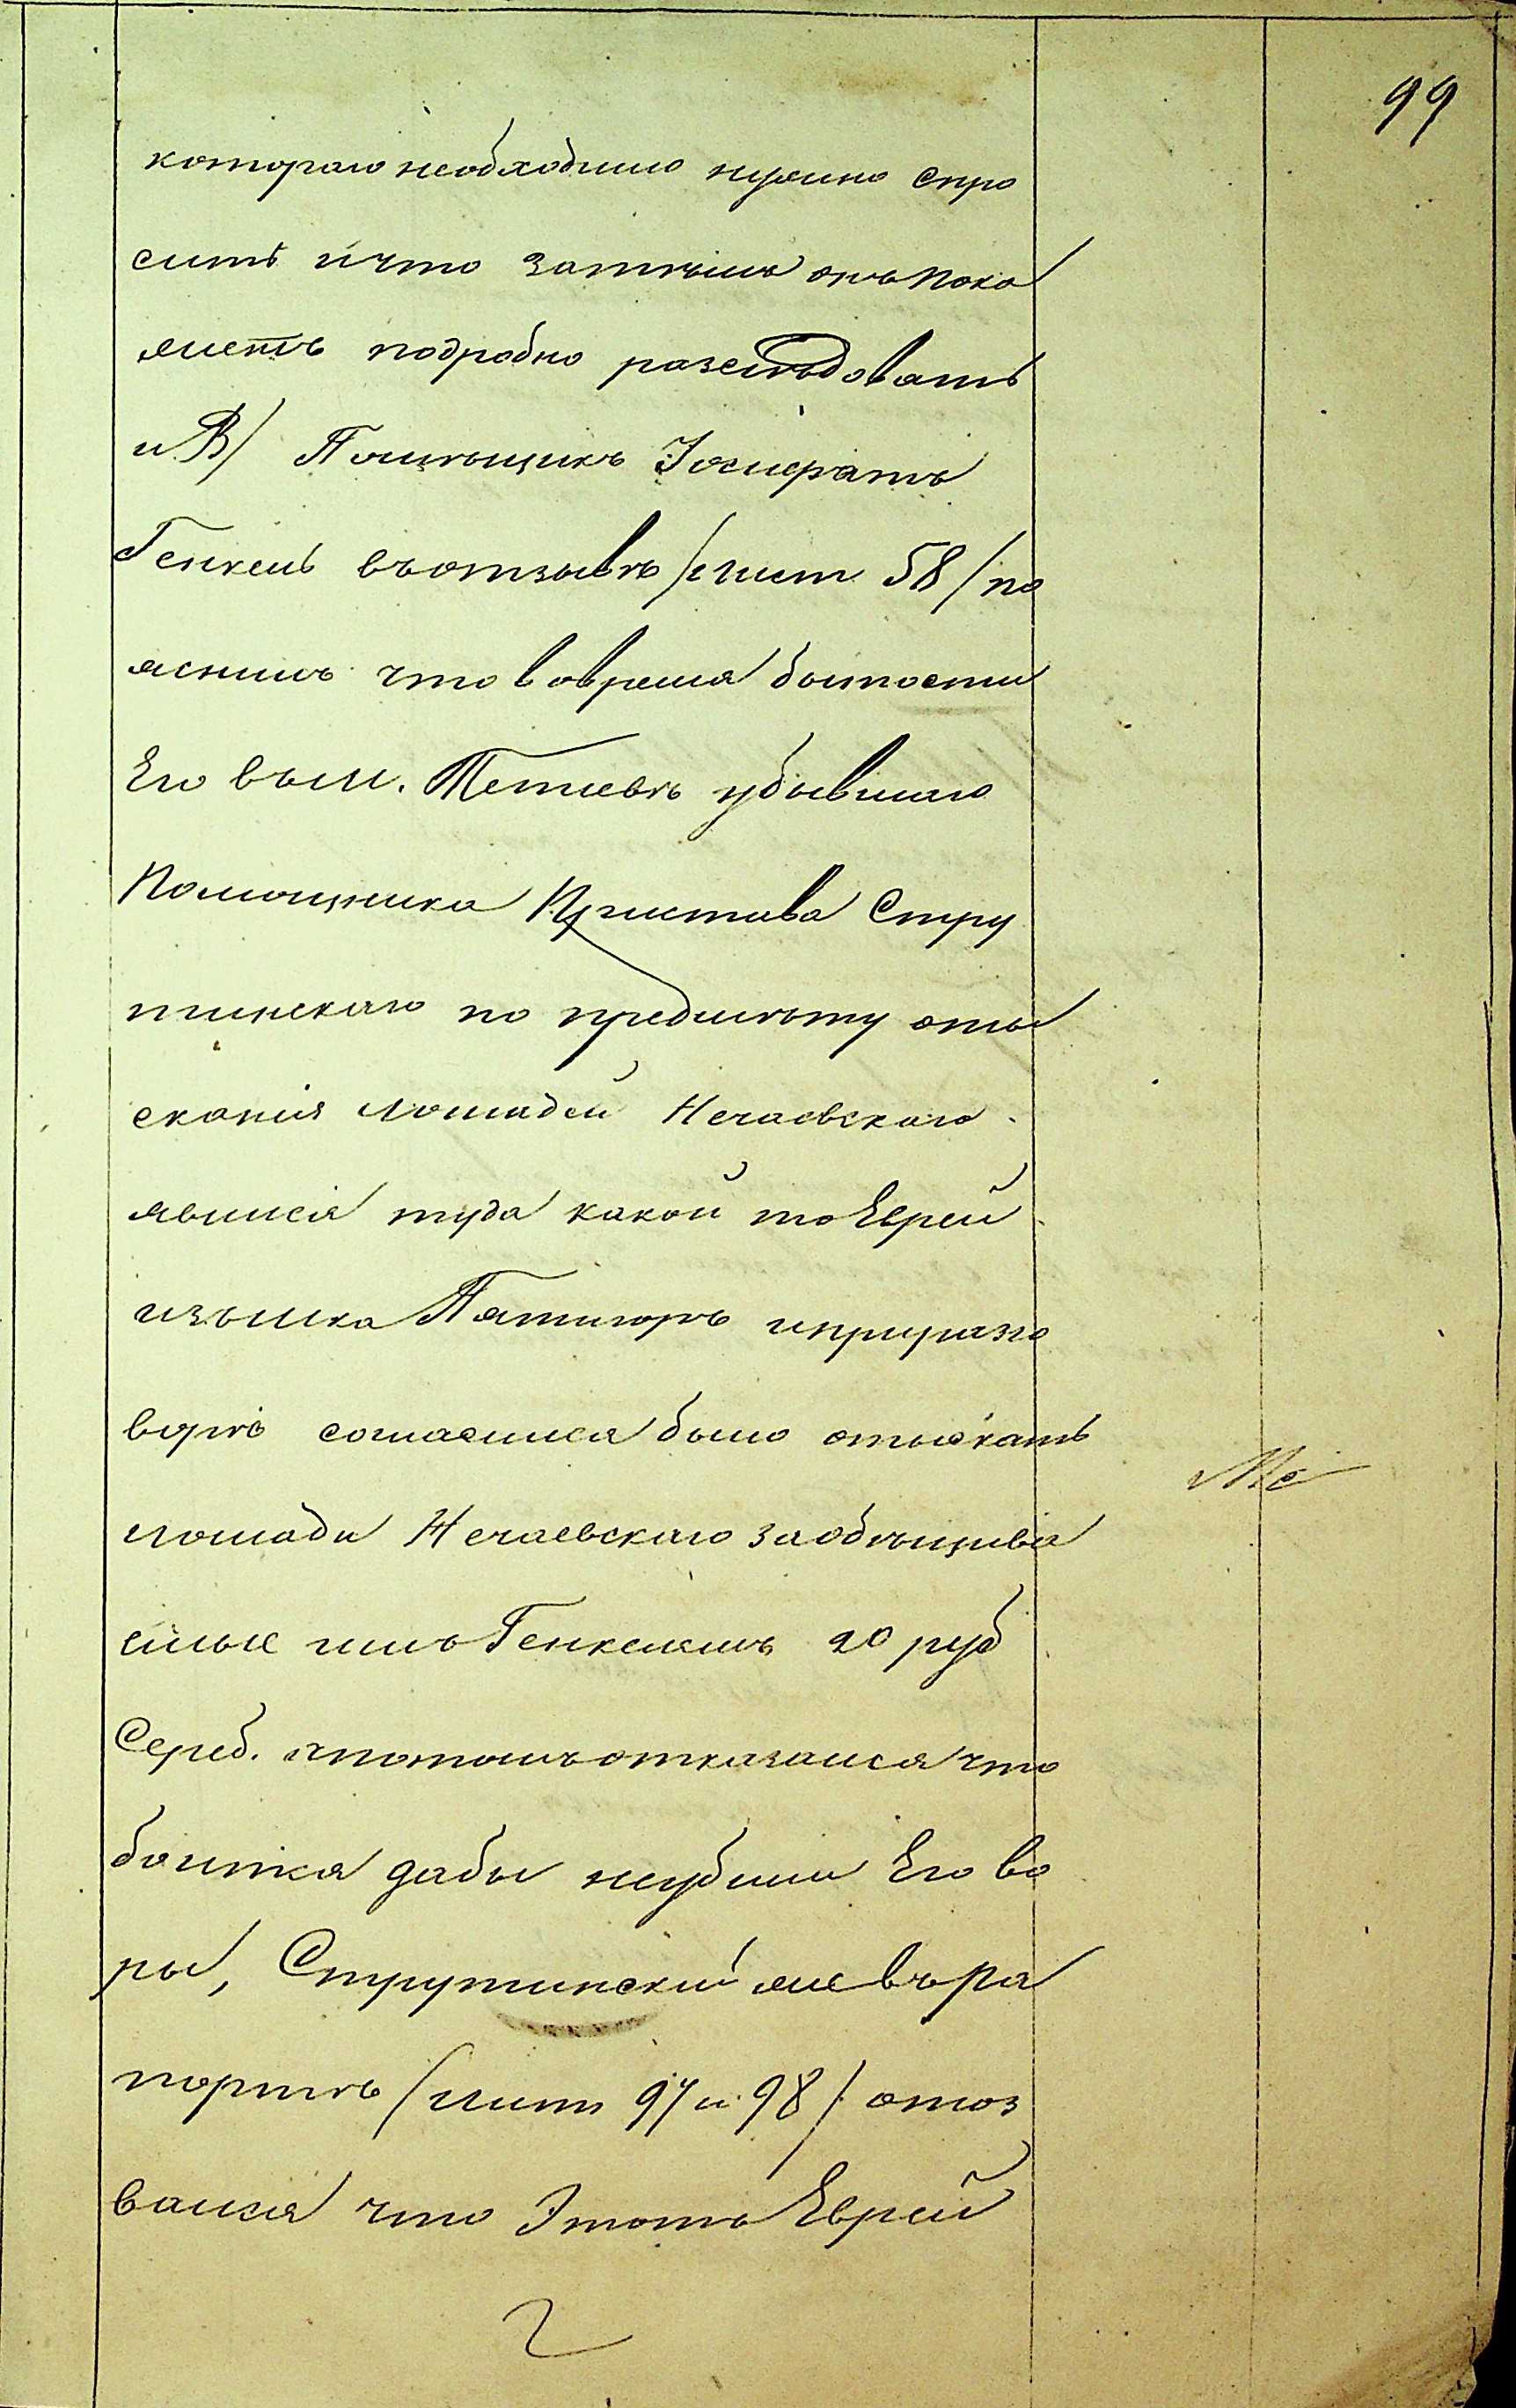 99
котораго необходимо нужно спро
сить и что затемъ онъ пока
жетъ подробно разследовать
и В/ Помѣщикъ
Генкель въ отзывѣ /лист 58/ по
яснилъ что во время бытности
Его въ м. Тетиевѣ убывшаго
Помощника Пристава Стру
тинскаго по предмѣту оты
сканія лошадей Нечаевскаго
явился туда какой то Еврей
изъ мка Пятигоръ и при разго
ворѣ согласился было отыскать
лошади Нечаевскаго за обѣщива
емые имъ Генкелемъ 20 руб
Сереб. а потомъ отказался что
боится дабы неубили Его во
ры, Струтинский же въ ра
портѣ /лист 97 и 98/ отоз
вался что Этотъ Еврей